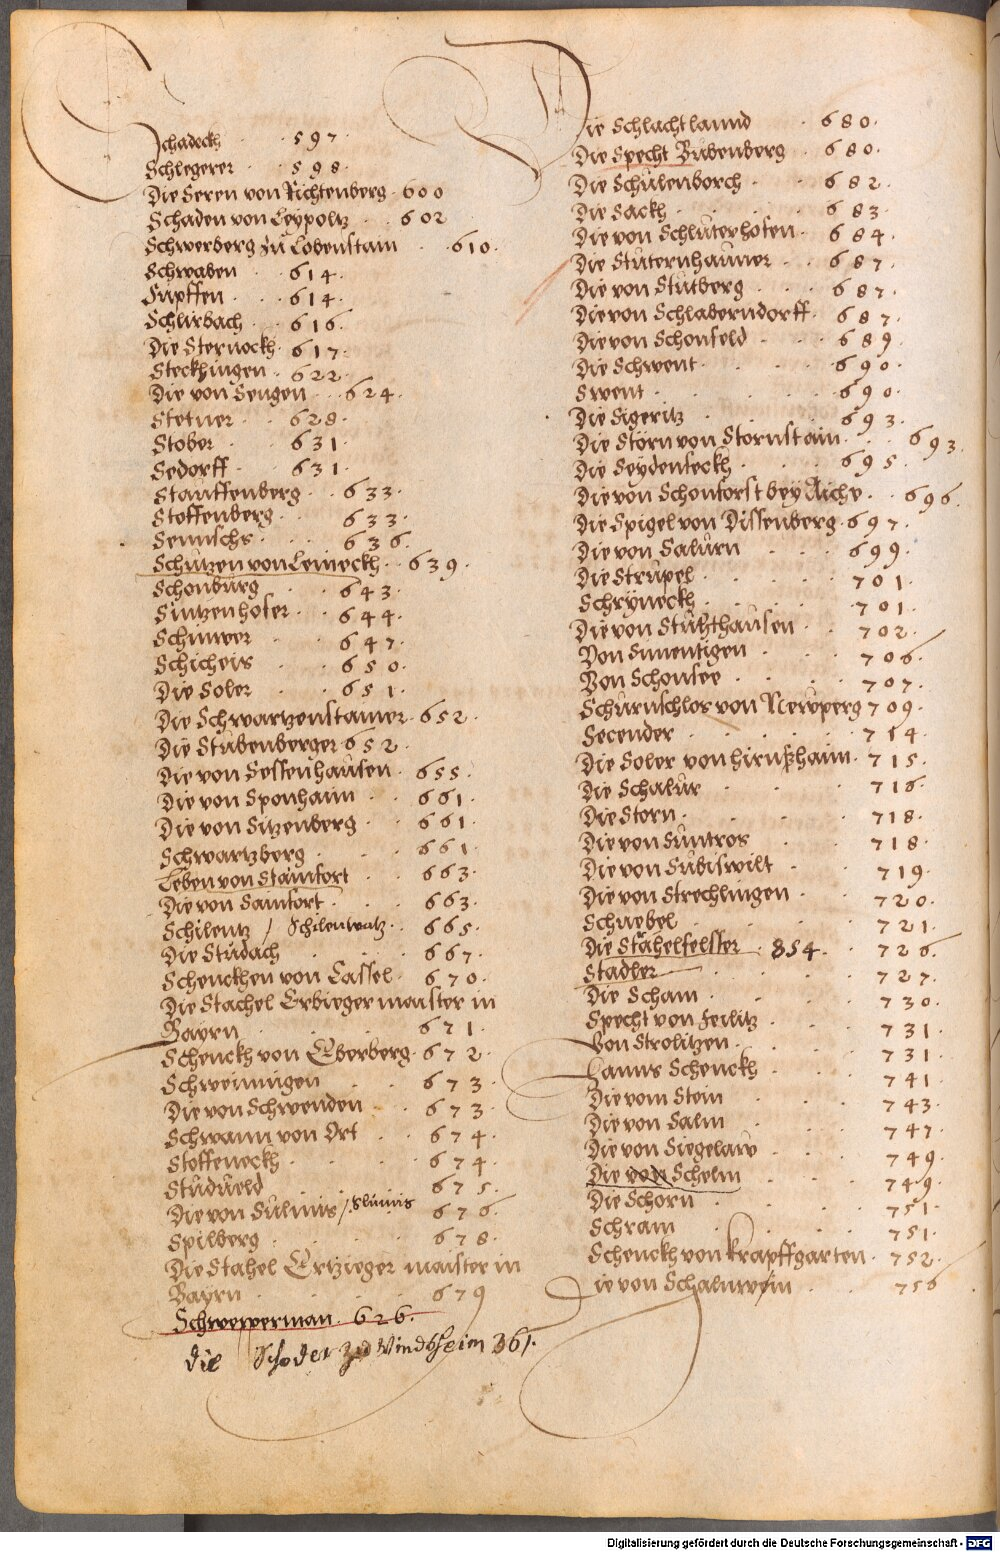 Schadeckh 597.
Schlegerer 598.
Die Seren von Richtenberg 600
Schaden von Leypoltz 602
Schwerberg zu Lobenstain 610.
Schwaben 614.
Supffen 614.
Schlirbach 616.
Die Sternockh 617.
Steckhingen 622.
Die von Sengen 624.
Stetner 628.
Stober 631.
Sedorff 631.
Stauffenberg 633.
Stoffenberg 633.
Sennschs 636.
Schutzen von Leineckh 639.
Schonburg 643.
Sintzenhofer 644.
Schinwer 647.
Schicheis 650.
Die Soler 651.
Die Schwartzenstainer 652.
Die Stubenberger 652.
Die von Sessenhausen 655.
Die von Sponhaim 661.
Die von Sitzenberg 661.
Schwartzberg 661.
Leben von Stainfort 663.
Die von Sainfort 663.
Schilentz / Schilenwatz 665.
Die Studach 667.
Schenckhen von Cassel 670.
Die Stachel Erbiegermaister in
Bayrn 671.
Schenckh von Eberberg 672.
Schweiningen 673.
Die von Schwenden 673.
Schwann von Ort 674.
Stoffeneckh 674.
Studueld 675.
Die von Sulmis / Slumis 676.
Spilberg 678.
Die Stahel Ertzieger maister in
Bayrn 679
Schwepperman 626.
die Schoder zu Windsheim 361.
Die Schlachtlannd 680.
Die Specht Bubenberg 680.
Die Schulenborch 682.
Die Sackh 683.
Die von Schluterhofen 684.
Die Stuternhaimer 687.
Die von Stutberg 687.
Die von Schlaberndorff 687.
Die von Schonfeld 689.
Die Schwent 690.
Swent 690.
Die Sigeritz 693.
Die Storn von Stornstain 693.
Die Seydenseckh 695.
Die von Schonforst bey Aiche 696.
Die Spigel von Dissenberg 697.
Die von Salurn 699.
Die Strupel 701.
Schryneckh 701.
Die von Stutzthausen 702.
Von Sunentigen 706.
Von Schonsee 707.
Schurnschlos von Newperg 709.
Secender 714.
Die Soler von hirnshaim 715.
Die Schalur 716.
Die Storn 718.
Die von Suntros 718.
Die von Subiswilt 719.
Die von Strechlingen 720.
Schnebel 721.
Die Stahelfelster 854. 726.
Stadler 727.
Die Scham 730.
Specht von Feilitz 731.
Von Strolitzen 731.
Hanns Schenckh 741.
Die vom Stein 743.
Die von Salm 747.
Die von Siegelaw 749.
Die von Schelm 749.
Die Schorn 751.
Schram 751.
Schenckh von krapffgarten 752.
Die von Schalunwein 756
Digitalisierung gefördert durch die Deutsche Forschungsgemeinschaft - DFG